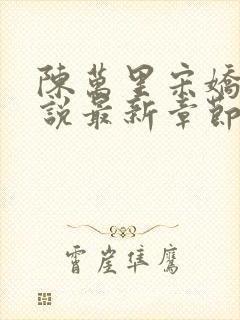 陳萬里宋嬌
說最新章節
霄崖隼鷹